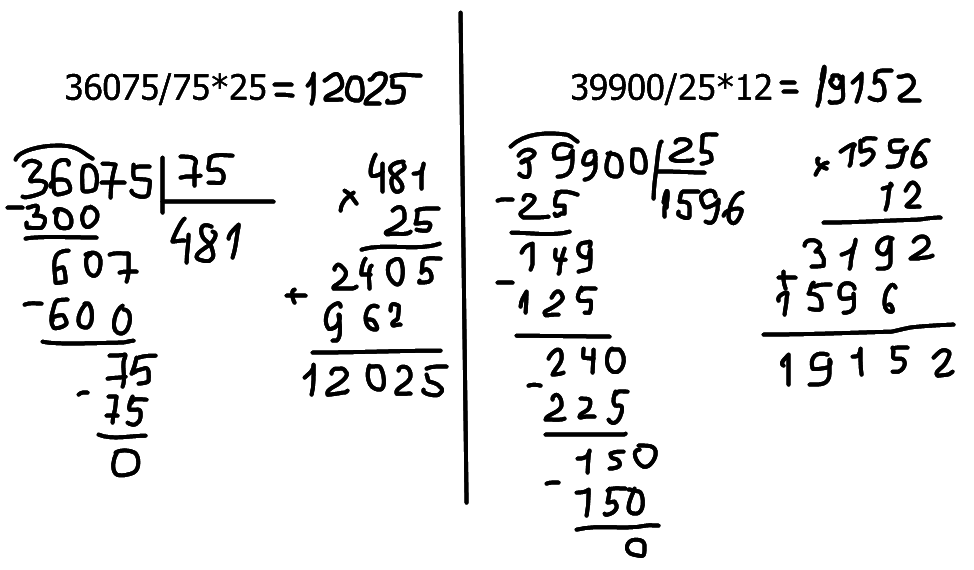 36075/75*25 = 12025
36075 75
-300
481
607
-600
75
- 75
0
× 481
25
2405
+ 962
12025
39900/25*12 = 19152
39900 25
-25
1596
149
-125
240
- 225
150
- 150
0
× 1596
12
3192
+ 1596
19152